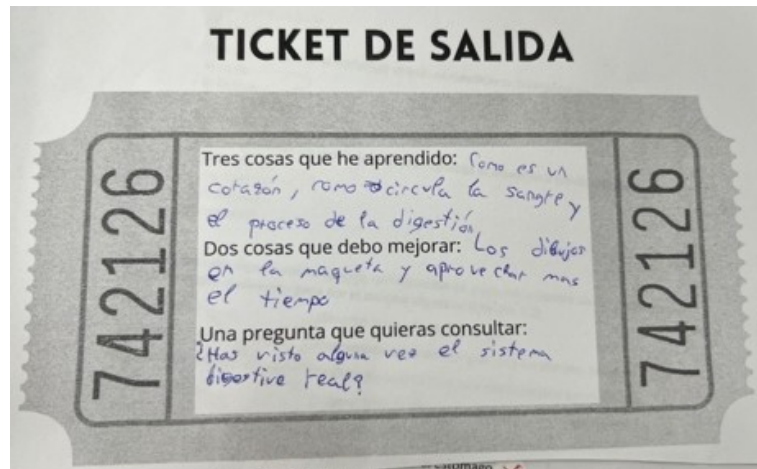 TICKET DE SALIDA
742126
Tres cosas que he aprendido: Como es un
corazón, como circula la sangre y
el proceso de la digestión
Dos cosas que debo mejorar: Los dibujos
en la maqueta y aprovechar mas
el tiempo
Una pregunta que quieras consultar:
¿Has visto alguna vez el sistema
digestivo real?
742126